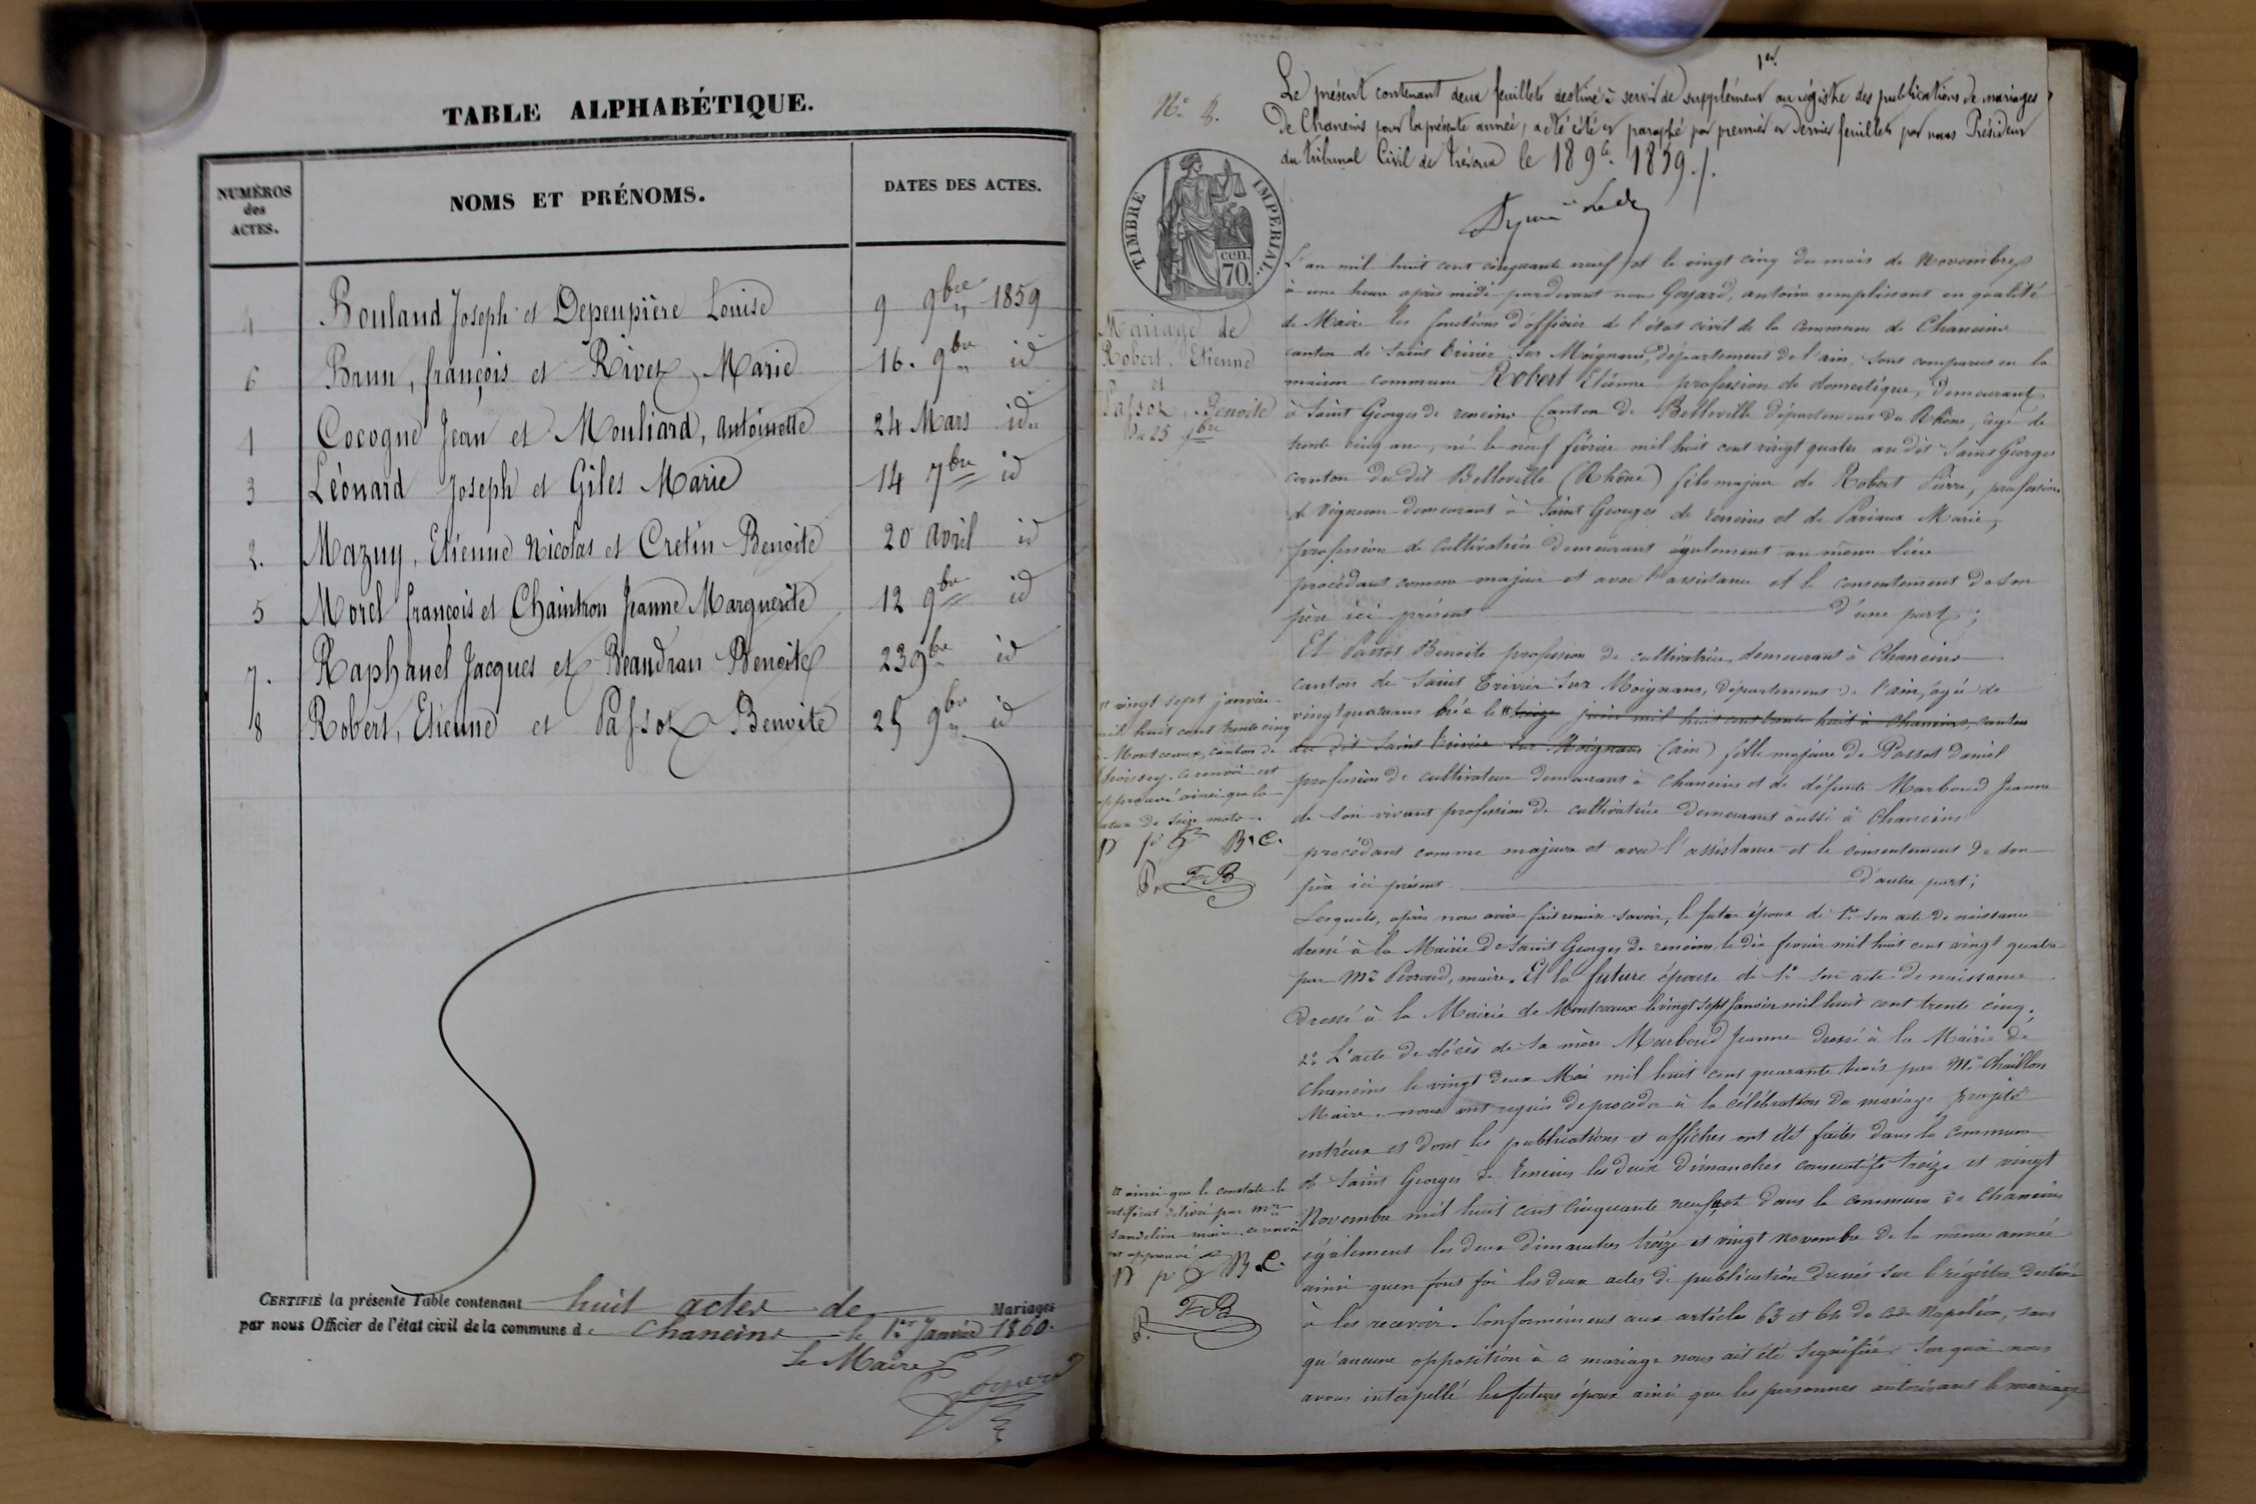 TABLE ALPHABÉTIQUE.
NUMÉROS des ACTES.
NOMS ET PRÉNOMS.
DATES DES ACTES.
4 Bouland Joseph et Depeupière Louise 9 9bre 1859
6 Brun, françois et Rivet, Marie 16. 9bre id
1 Cocogne Jean et Mouliard, antoinette 24 Mars id
3 Léonard Joseph et Giles Marie 14 7bre id
2. Mazuy, Etienne Nicolas et Cretin Benoite 20 avril id
5 Morel françois et Chaintron Jeanne Marguerite 12 9bre id
7. Raphanel Jacques et Beaudran Benoite 23 9bre id
8 Robert, Etienne et Passot Benoite 25 9bre id
CERTIFIÉ la présente Table contenant huit actes de Mariages
par nous Officier de l'état civil de la commune de Chaneins le 1er Janvier 1860.
Le Maire
Goyard
1er
N° 8.
Le présent contenant deux feuillets destiné à servir de supplément au régistre des publications de mariages
de Chaneins pour la présente année, a été côté et paraphé par premier et dernier feuillets par nous Président
du tribunal Civil de Trévoux le 18 9bre 1859./.
TIMBRE IMPÉRIAL.
70 cen.
Mariage de
Robert, Etienne
et
Passot, Benoite
Du 25 9bre
L'an mil huit cent cinquante neuf et le vingt cinq du mois de Novembre
à une heure après midi pardevant nous Goyard, antoine remplissant en qualité
de Maire les fonctions d'officier de l'état civil de la commune de Chaneins
canton de Saint Trivier sur Moignans, département de l'ain, sont comparus en la
maison commune Robert Etienne profession de domestique, demeurant
à Saint Georges de reneins Canton de Belleville département du Rhône, âgé de
trente cinq ans, né le neuf février mil huit cent vingt quatre au dit Saint Georges
canton du dit Belleville (Rhône) fils majeur de Robert Pierre, profession
de Vigneron demeurant à Saint Georges de reneins et de Pariaux Marie,
profession de cultivatrice demeurant également au même lieu
procédant comme majeur et avec l'assistance et le consentement de son
père ici présent d'une part;
Et Passot Benoite profession de cultivatrice, demeurant à Chaneins
canton de Saint Trivier sur Moignans, département de l'ain, âgée de
vingt quatre ans née le treize juin mil huit cent trente huit à Chaneins, canton
du dit Saint Trivier sur Moignans (ain) fille majeure de Passot Daniel
profession de cultivateur demeurant à Chaneins et de défunte Marboud Jeanne
de son vivant profession de cultivatrice demeurant aussi à Chaneins
procédant comme majeure et avec l'assistance et le consentement de son
père ici présent d'autre part;
vingt sept janvier
mil huit cent trente cinq
à Montceaux, canton de
Thoissey. Ce renvoi est
approuvé ainsi que la
rature de seize mots.
B. C.
F B
Lesquels, après nous avoir fait remise savoir, le futur époux de 1° son acte de naissance
dressé à la Mairie de Saint Georges de reneins, le dix février mil huit cent vingt quatre
par Mr maire. Et la future épouse de 1° son acte de naissance
dressé à la Mairie de Montceaux le vingt sept Janvier mil huit cent trente cinq;
2° L'acte de décès de sa mère Marboud Jeanne dressé à la Mairie de
Chaneins le vingt deux Mai mil huit cent quarante trois par Mr
Maire. nous ont requis de procéder à la célébration du mariage projeté
entr'eux et dont les publications et affiches ont été faites dans la commune
de Saint Georges de reneins les deux dimanches consécutifs treize et vingt
Novembre mil huit cent cinquante neuf et dans la commune de Chaneins
également les deux dimanches treize et vingt novembre de la même année
ainsi qu'en font foi les deux actes de publication dressés sur le régistre destiné
à les recevoir. Conformément aux articles 63 et 64 du Code Napoléon, sans
qu'aucune opposition à ce mariage nous ait été signifiée. Sur quoi nous
avons interpellé les futurs époux ainsi que les personnes autorisant le mariage
ainsi que le constate le
certificat délivré par Mr
maire. ce renvoi
est approuvé
B. C.
F B